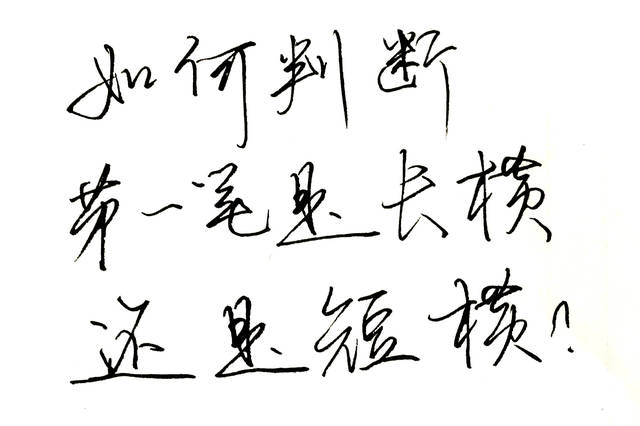 如何判断
第一笔是长横
还是短横?